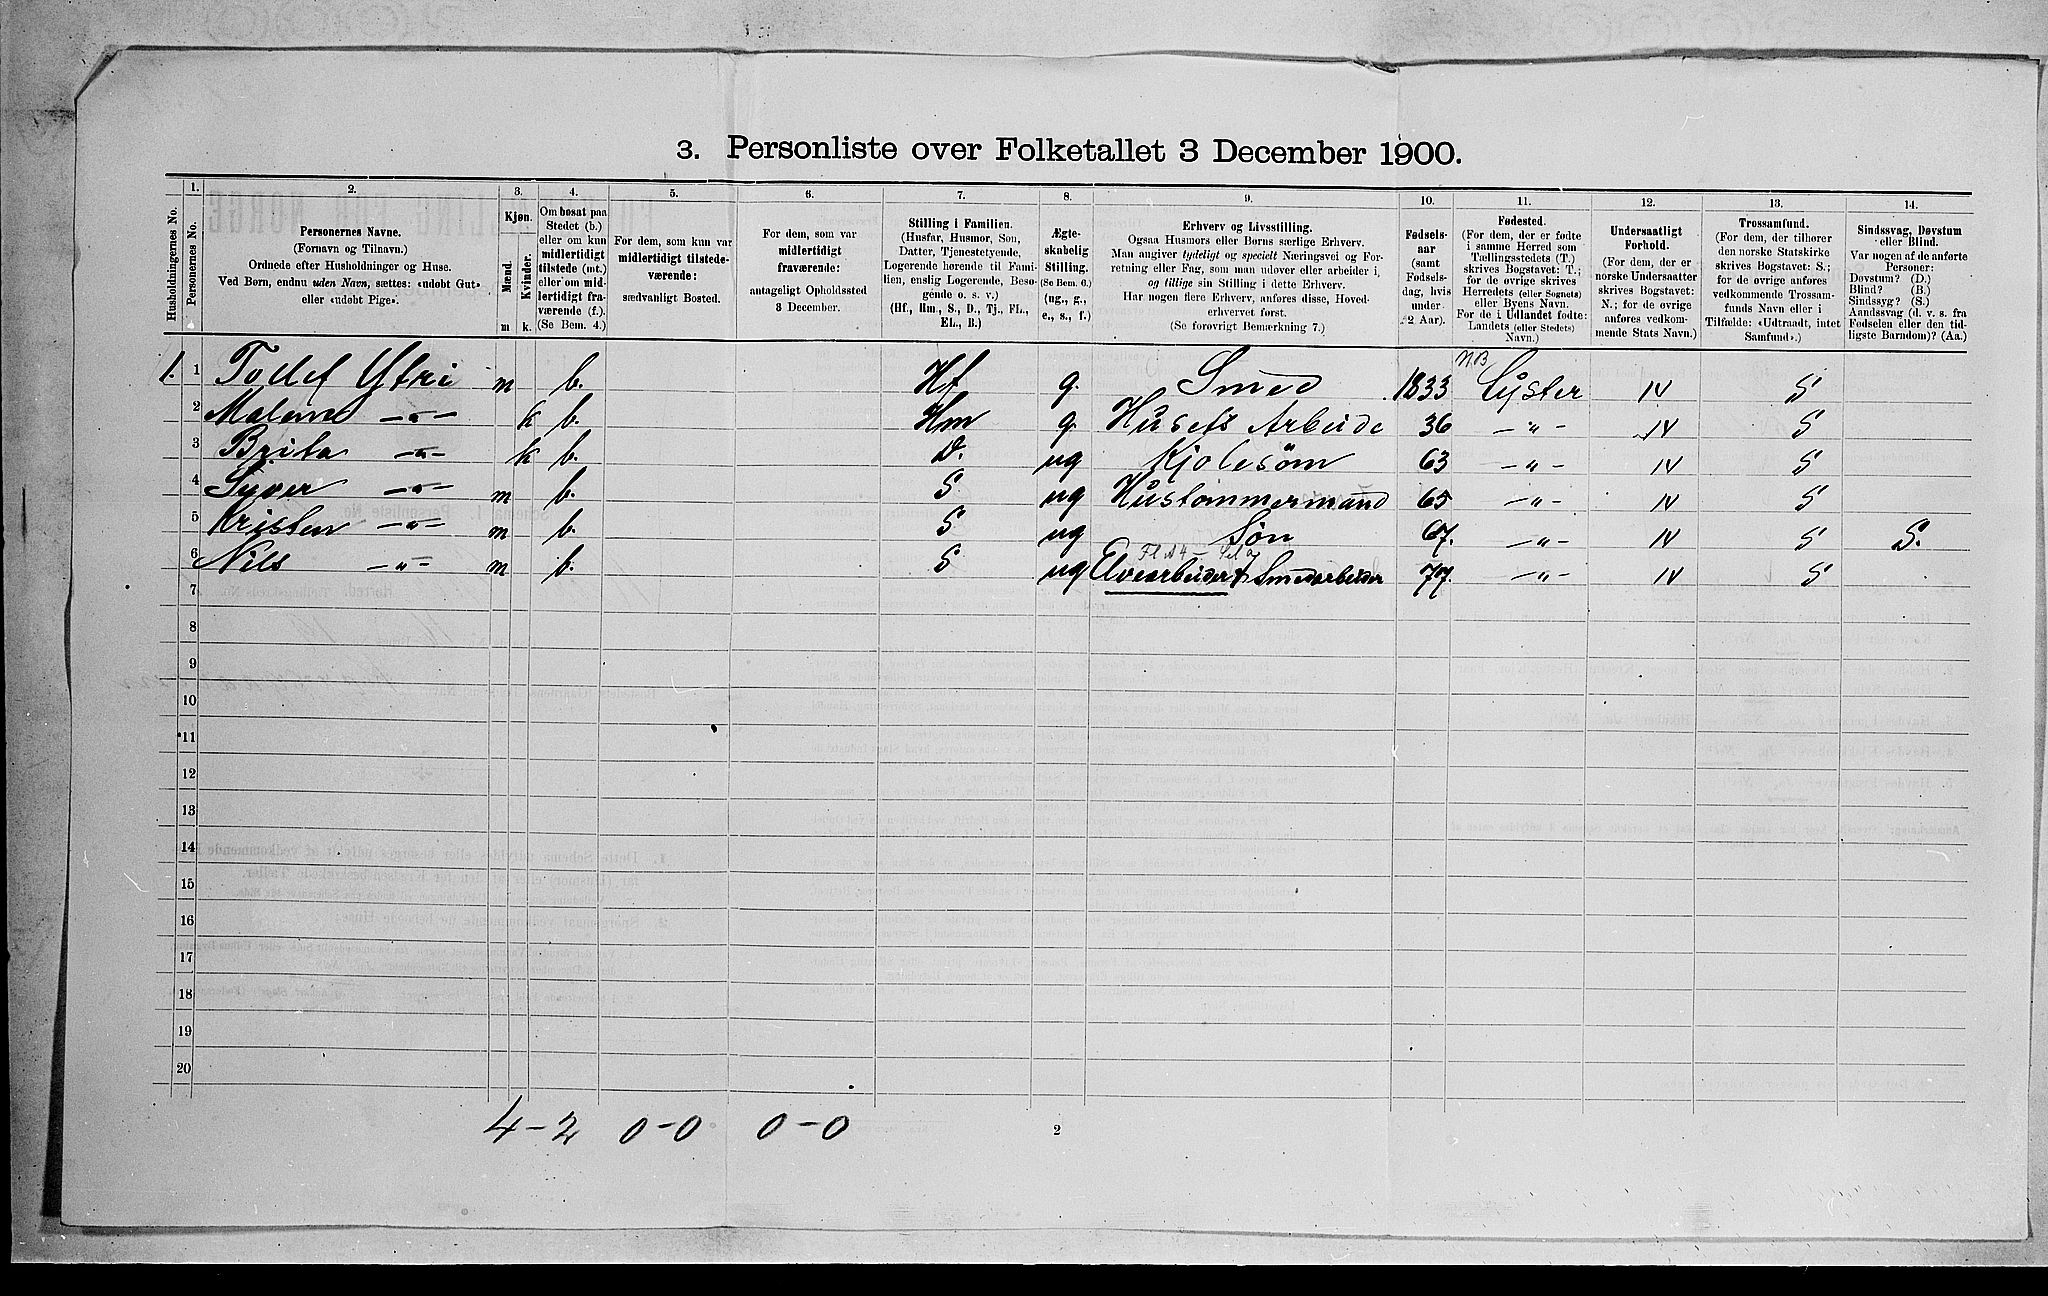 3. Personliste over Folketallet 3 December 1900.
1. 2. 3. 4. 5. 6. 7. 8. 9. 10. 11. 12. 13. 14.
Husholdningernes No.
Personernes No.
Personernes Navne.
(Fornavn og Tilnavn.)
Ordnede efter Husholdninger og Huse.
Ved Børn, endnu uden Navn, sættes: «udøbt Gut»
eller «udøbt Pige».
Kjøn.
Mænd.
Kvinder.
m k.
Om bosat paa
Stedet (b.)
eller om kun
midlertidigt
tilstede (mt.)
eller om mid-
lertidigt fra-
værende (f.).
(Se Bem. 4.)
For dem, som kun var
midlertidigt tilstede-
værende:
sædvanligt Bosted.
For dem, som var
midlertidigt
fraværende:
antageligt Opholdssted
3 December.
Stilling i Familien.
(Husfar, Husmor, Søn,
Datter, Tjenestetyende,
Logerende hørende til Fami-
lien, enslig Logerende, Besø-
gende o. s. v.)
(Hf., Hm., S., D., Tj., FL.,
EL., B.)
Ægte-
skabelig
Stilling.
(Se Bem. 6.)
(ug., g.,
e., s., f.)
Erhverv og Livsstilling.
Ogsaa Husmors eller Børns særlige Erhverv.
Man angiver tydeligt og specielt Næringsvei og For-
retning eller Fag, som man udover eller arbeider i,
og tillige sin Stilling i dette Erhverv.
Har nogen flere Erhverv, anføres disse, Hoved-
erhvervet først.
(Se forøvrigt Bemærkning 7.)
Fødsels-
aar
(samt
Fødsels-
dag, hvis
under
2 Aar).
Fødested.
(For dem, der er fødte
i samme Herred som
Tællingsstedets (T.)
skrives Bogstavet: T.;
for de øvrige skrives
Herredets (eller Sognets)
eller Byens Navn.
For de i Udlandet fødte:
Landets (eller Stedets)
Navn.)
Undersaatligt
Forhold.
(For dem, der er
norske Undersaatter
skrives Bogstavet:
N.; for de øvrige
anføres vedkom-
mende Stats Navn.)
Trossamfund.
(For dem, der tilhører
den norske Statskirke
skrives Bogstavet: S.;
for de øvrige anføres
vedkommende Trossam-
funds Navn eller i
Tilfælde: «Udtraadt, intet
Samfund».)
Sindssvag, Døvstum
eller Blind.
Var nogen af de anførte
Personer:
Døvstum? (D.)
Blind? (B.)
Sindssyg? (S.)
Aandssvag (d. v. s. fra
Fødselen eller den tid-
ligste Barndom)? (Aa.)
NB
1. 1 Todef Ytri m b. Hf g. Smed 1833 Lyster N S
2 Malene —„— k b. Hm g. Husets Arbeide 36 —„— N S
3 Brita —„— k b. D. ug Kjolesøm 63 —„— N S
4 Syver —„— m b. S ug Hustømmermand 65 —„— N S
5 Kristen —„— m b. S ug Søn 67. —„— N S S.
6 Nils —„— m b. S ug Elvearbeider & Smedarbeider 77. —„— N S
7
8
9
10
11
12
13
14
15
16
17
18
19
20
4-2 0-0 0-0
2